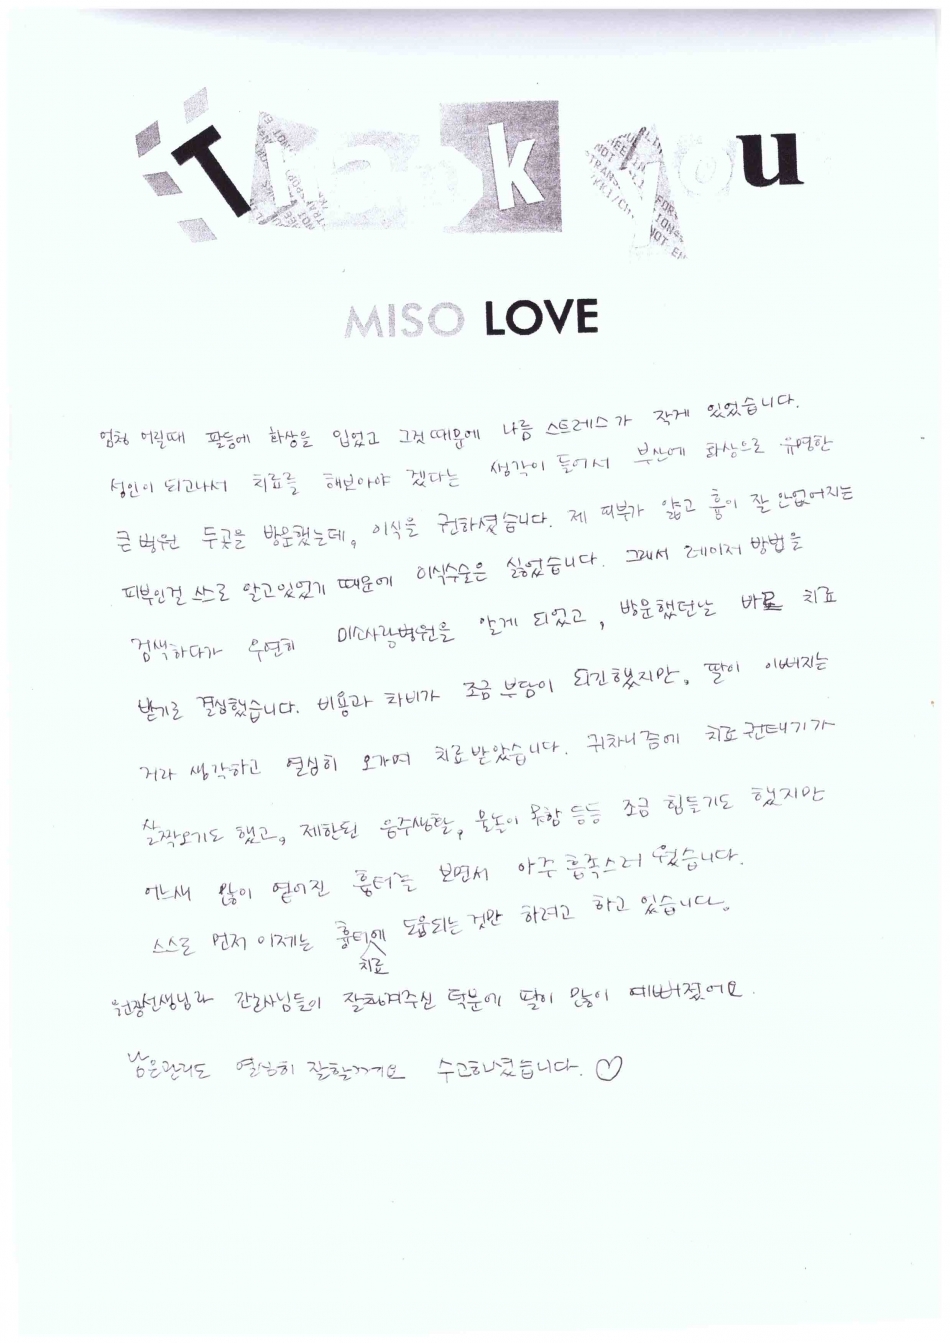 Thank you
MISO LOVE
엄청 어릴때 팔등에 화상을 입었고 그것때문에 나름 스트레스가 작게 있었습니다.
성인이 되고나서 치료를 해보아야 겠다는 생각이 들어서 부산에 화상으로 유명한
큰 병원 두곳을 방문했는데, 이식을 권하셨습니다. 제 피부가 얇고 흉이 잘 안없어지는
피부인걸 스스로 알고있었기 때문에 이식수술은 싫었습니다. 그래서 레이저 방법을
검색하다가 우연히 미소사랑병원을 알게 되었고, 방문했던날 바로 치료
받기로 결심했습니다. 비용과 차비가 조금 부담이 되긴했지만, 팔이 이뻐지는
거라 생각하고 열심히 오가며 치료받았습니다. 귀차니즘에 치료권태기가
살짝오기도 했고, 제한된 음주생활, 물놀이 못함 등등 조금 힘들기도 했지만
어느새 많이 옅어진 흉터를 보면서 아주 흡족스러웠습니다.
스스로 먼저 이제는 흉터에 치료 도움되는것만 하려고 하고 있습니다.
원장선생님과 간호사님들이 잘해주신 덕분에 팔이 많이 예뻐졌어요.
남은관리도 열심히 잘할게요 수고하셨습니다. ♡